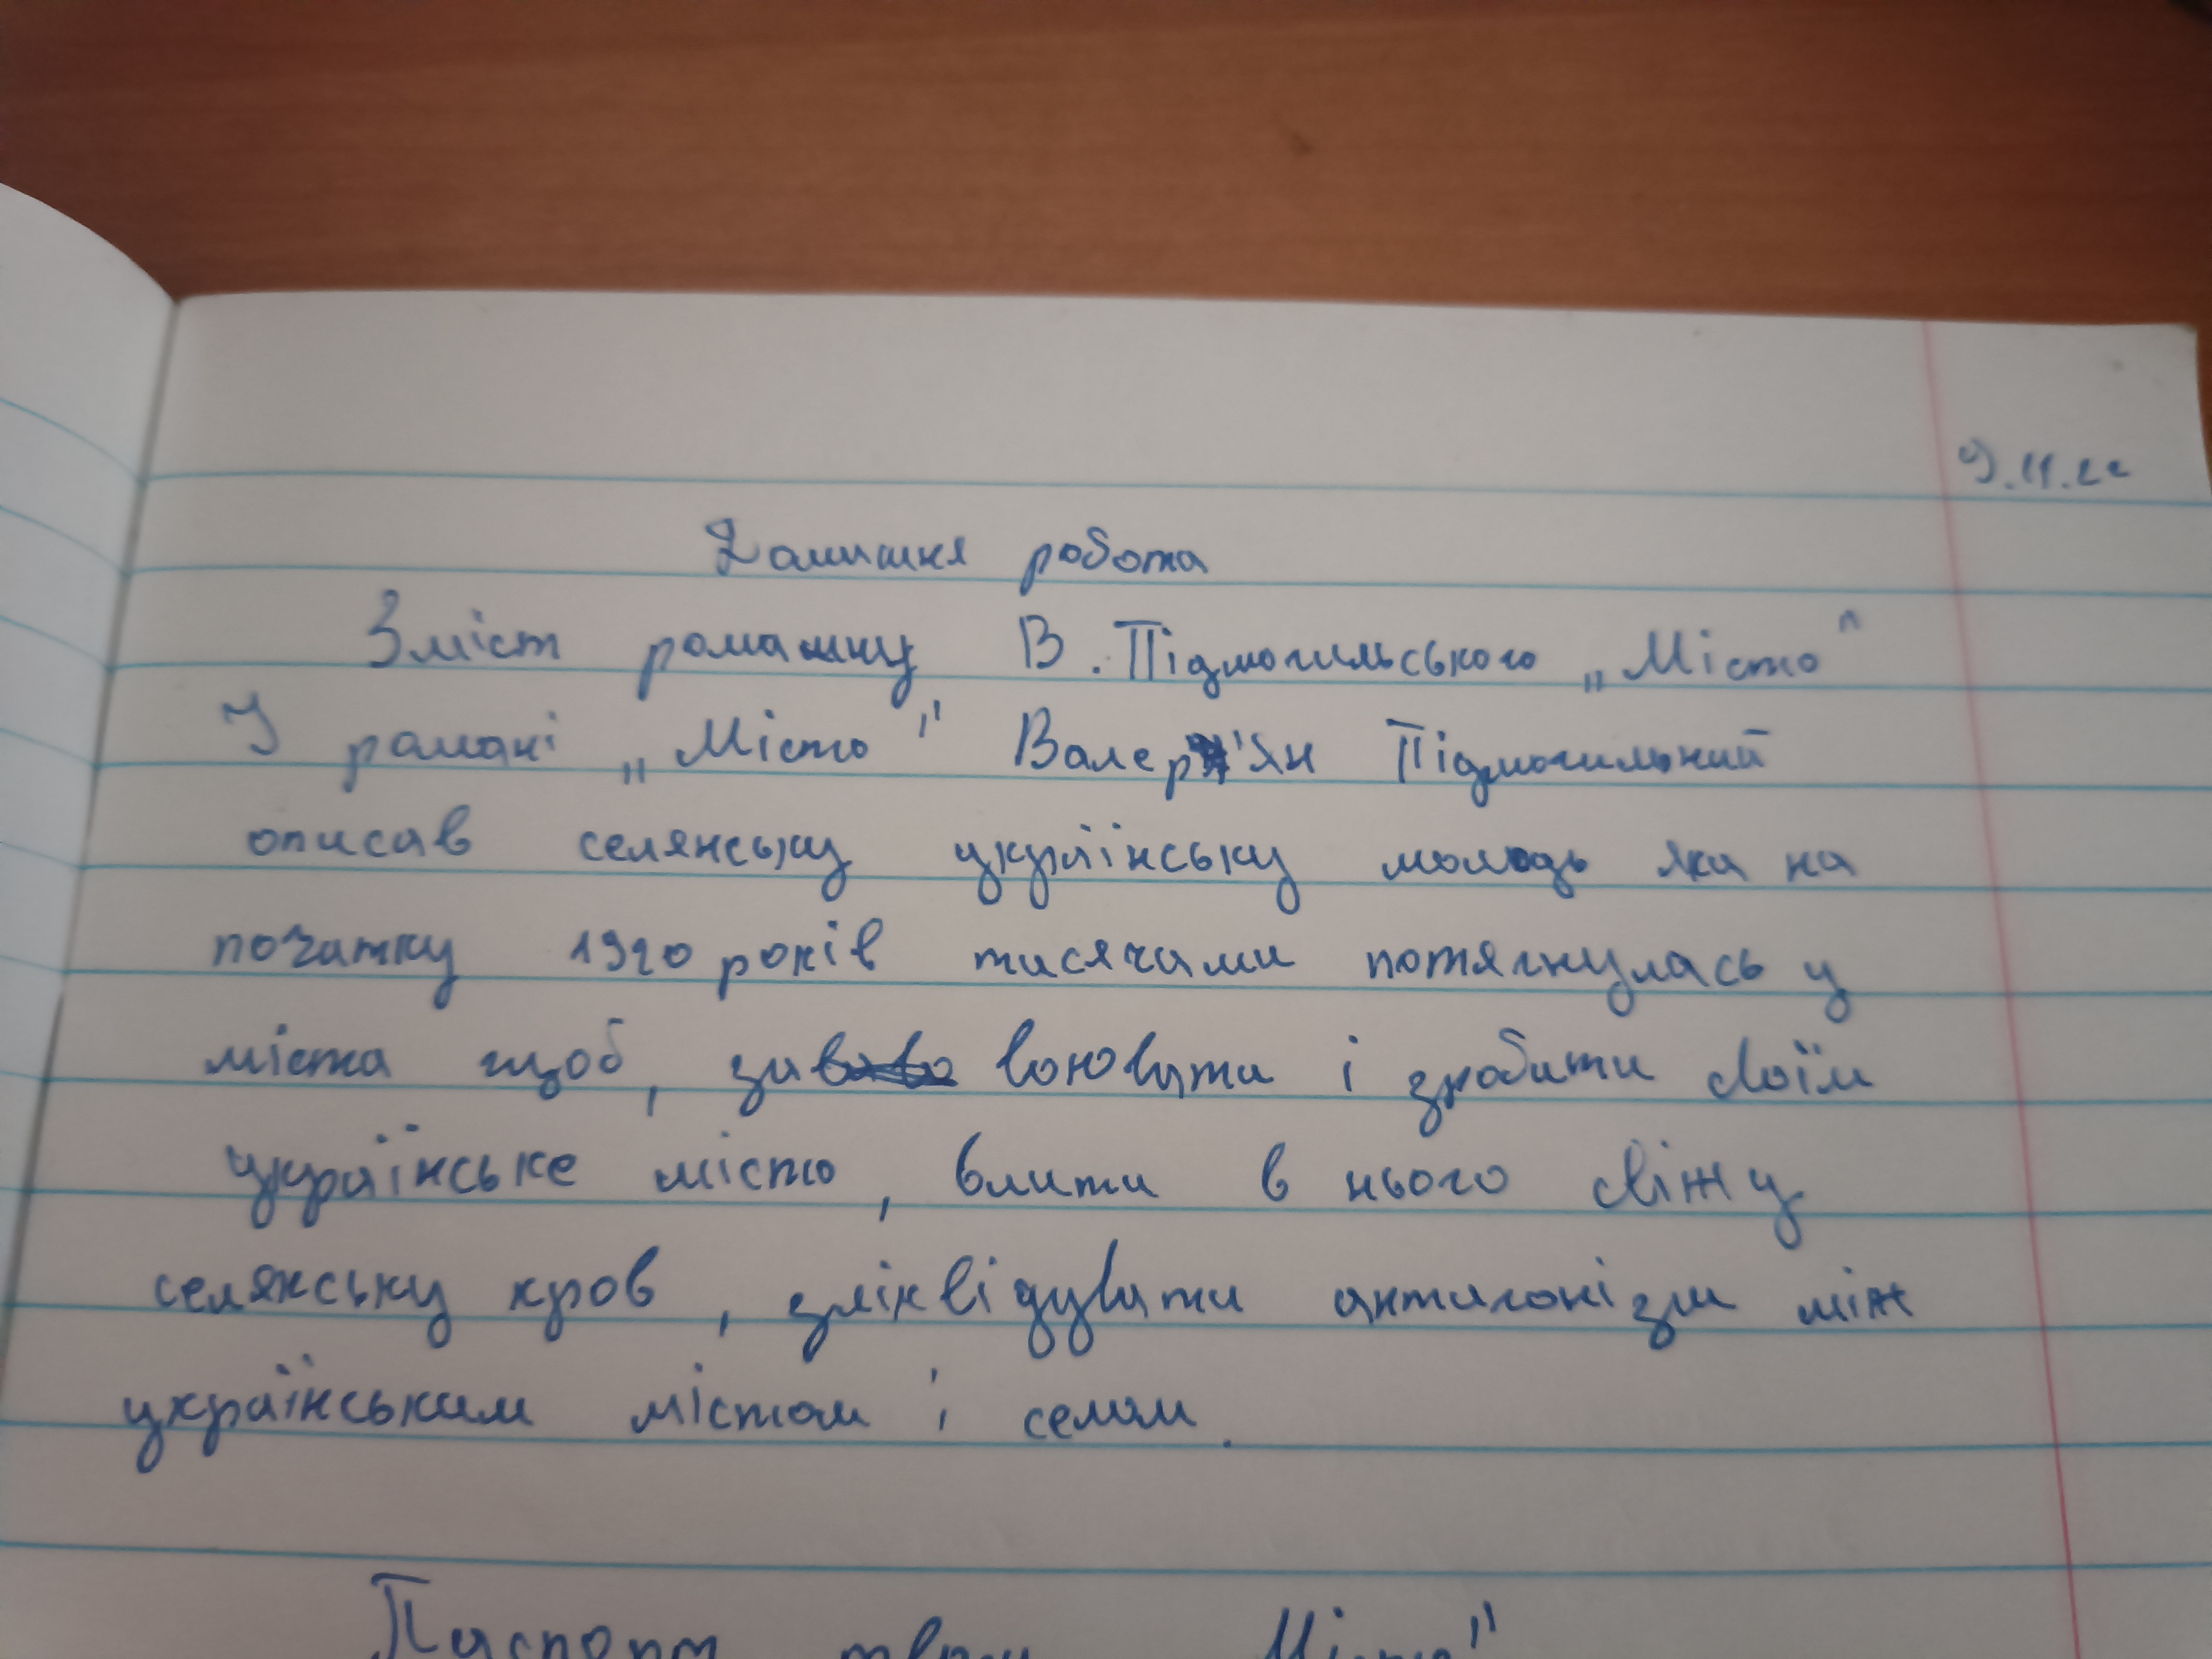 9.11.22
Домашня робота
Зміст роману В. Підмогильського „Місто"
У романі „Місто" Валер'ян Підмогильний
описав селянську українську молодь яка на
початку 1920 років тисячами потягнулась у
міста щоб, завоювати і зробити своїм
українське місто, влити в нього свіжу
селянську кров, зліквідувати антагонізм між
українським містом і селом.
Паспорт твору Місто"